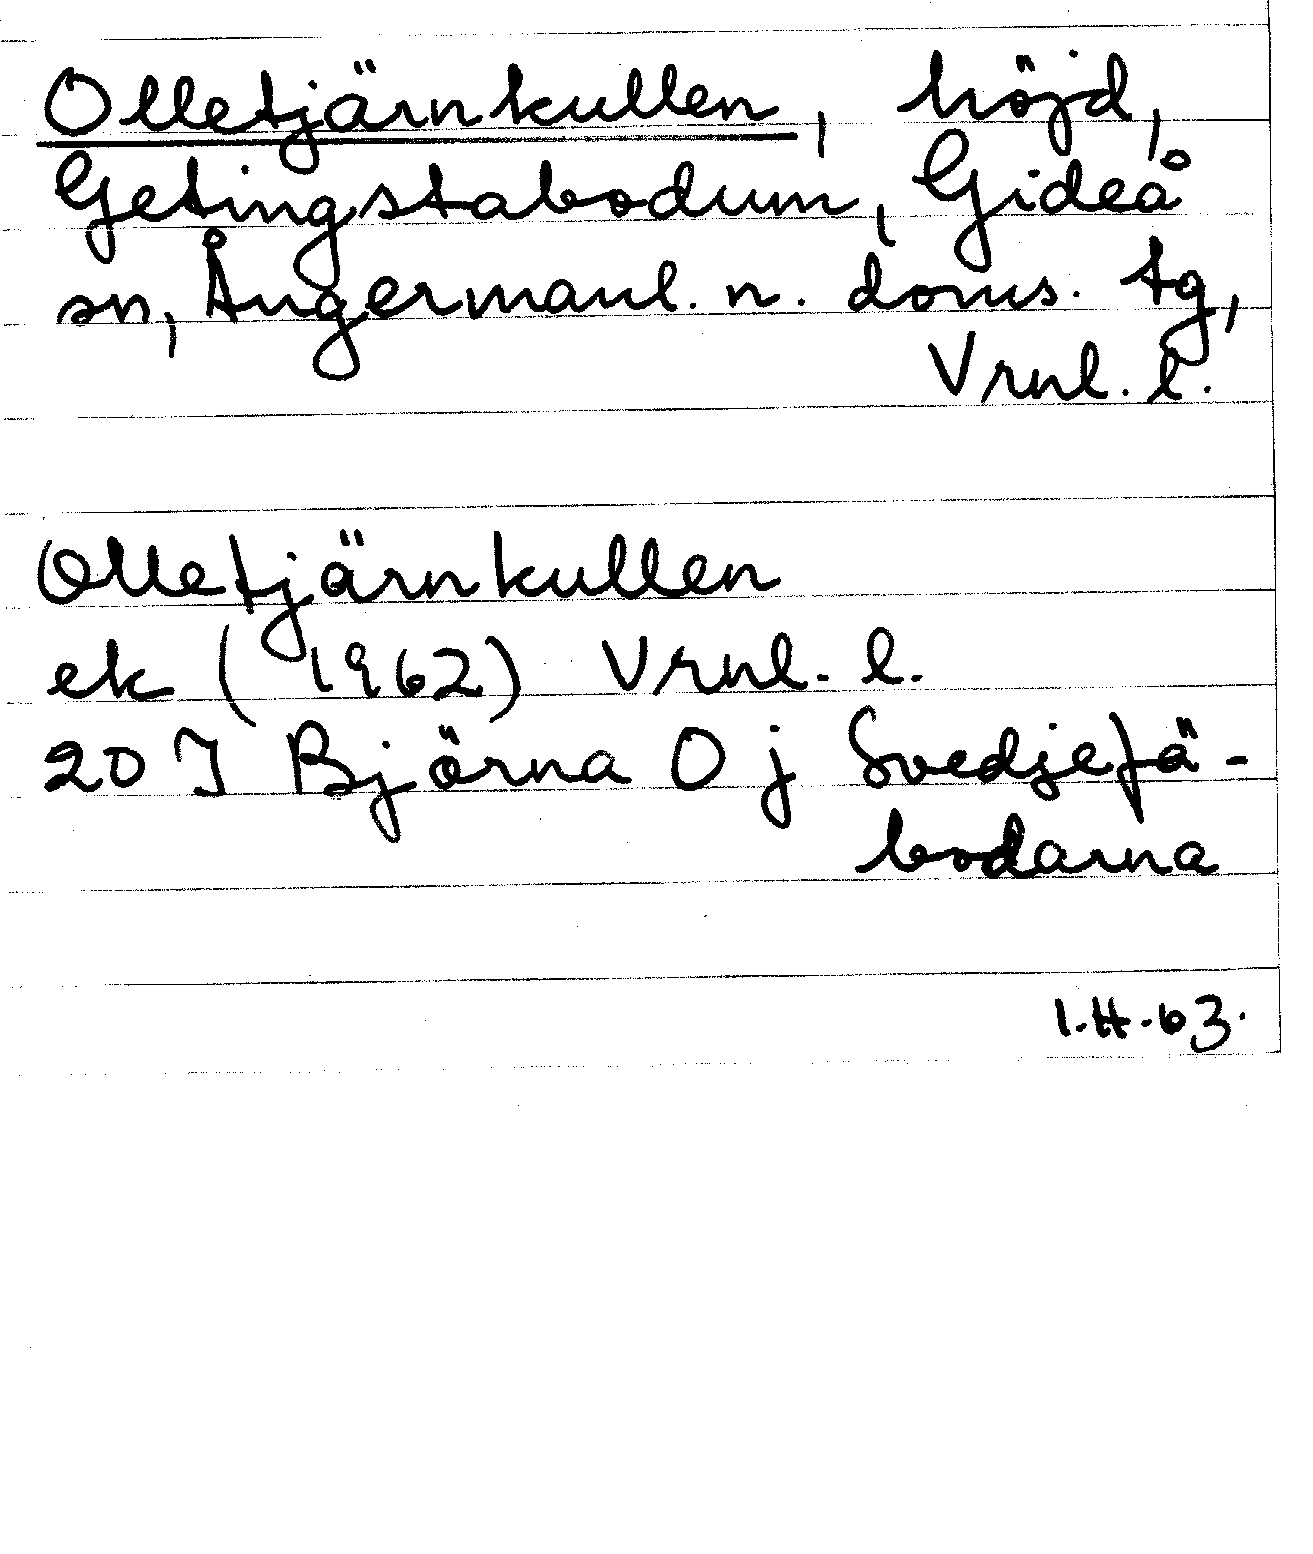 Olletjärnkullen, höjd,
Getingstabodum, Gideå
sn, Ångermanl. n. doms. tg,
Vrnl. l.
Olletjärnkullen
ek (1962) Vrnl. l.
20 I Björna 0 j Svedjefä-
bodarna
1.H.63.